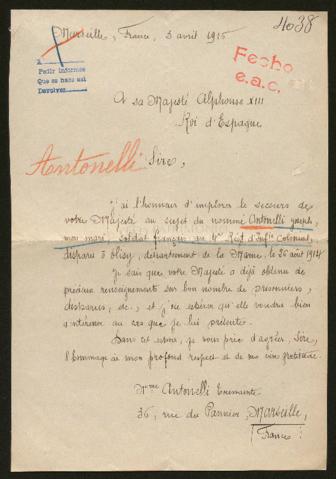 4038
Marseille, France, 3 avril 1915
Fecho
e.a.c.
Pedir informes
Que se hará est
Devolver
A sa Majesté Alphonse XIII
Roi d'Espagne
Antonelli
Sire,
j'ai l'honneur d'implorer le secours de
votre Majesté au sujet du nommé Antonelli Joseph,
mon mari, soldat français au 4me Régt d'Inftie Colonial,
disparu à Olizy, département de la Marne, le 26 août 1914
Je sais que votre Majesté a déjà obtenu de
précieux renseignements sur bon nombre de prisonniers,
disparus, etc., et j'ose espérer qu'elle voudra bien
s'intéresser au cas que je lui présente.
Dans cet espoir, je vous prie d'agréer, Sire,
l'hommage de mon profond respect et de ma vive gratitude.
Mme Antonelli
36, rue du Panier, Marseille,
(France)